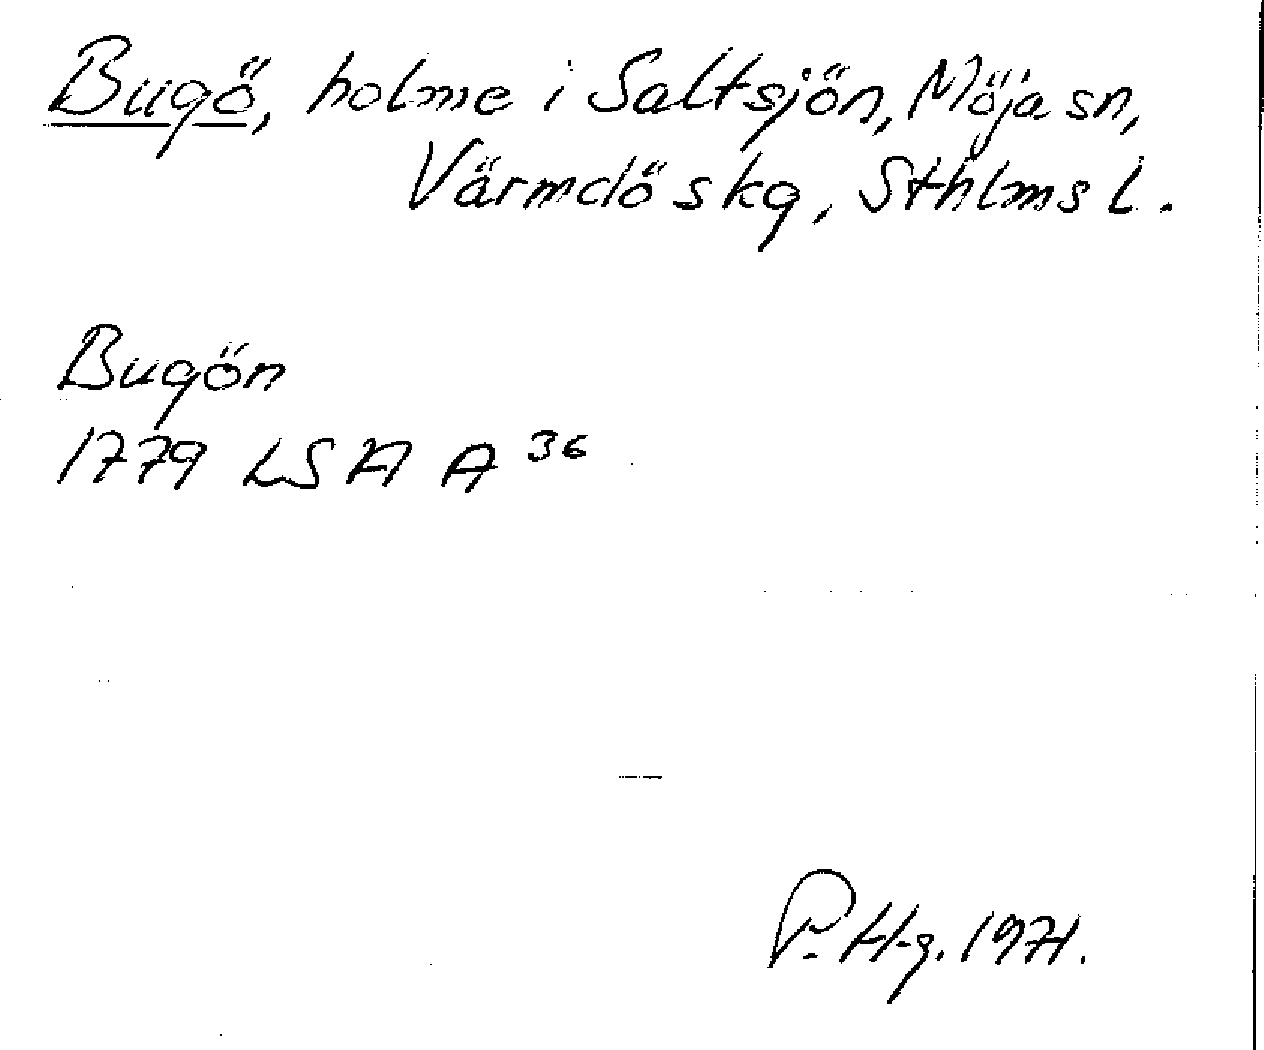 Bugö, holme i Saltsjön, Möja sn,
Värmdö skg, Sthlms l.
Bugön
1779 LSA A 36
P. Hg. 1971.